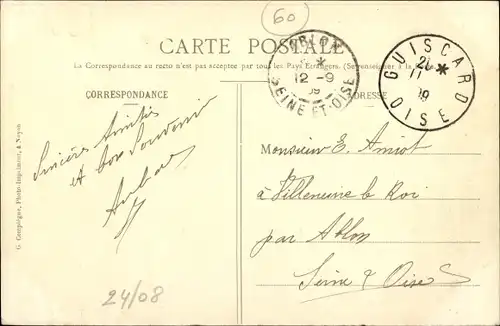 60
CARTE POSTALE
La Correspondance au recto n'est pas acceptée par tous les Pays Etrangers. (Se renseigner à la
ABLON
12-9
09
SEINE-ET-OISE
GUISCARD
21
11
09
OISE
CORRESPONDANCE
ADRESSE
Sincères Amitiés
et bon Souvenir
Monsieur E. Amiot
à Villeneuve le Roi
par Ablon
Seine & Oise
G. Compiègne, Photo-Imprimeur, à Noyon
24/08